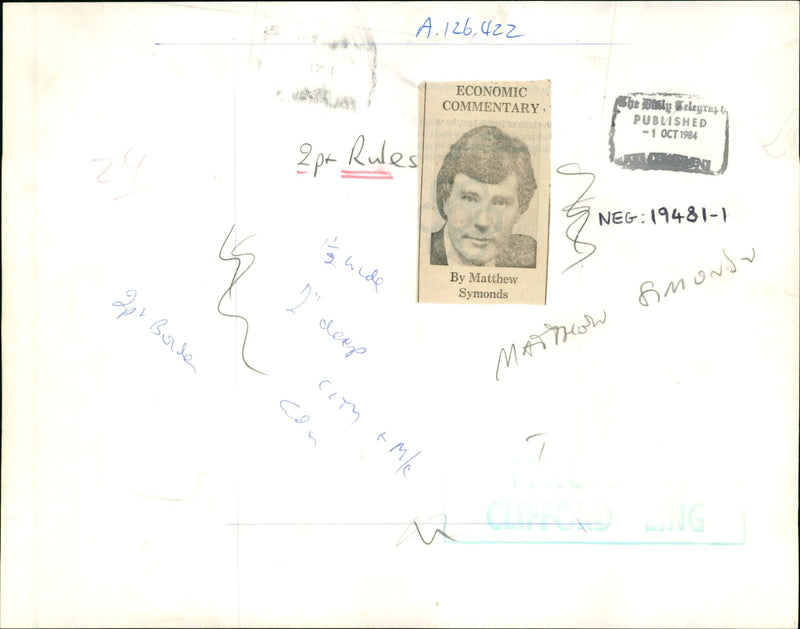 A.126,422
ECONOMIC
COMMENTARY
The Daily Telegraph
PUBLISHED
-1 OCT 1984
2pt Rules
24
NEG: 19481-1
By Matthew
Symonds
1½ wide
2" deep
2pt Border
MATTHEW SYMONDS
CITY + M/C
CLIFFORD LING